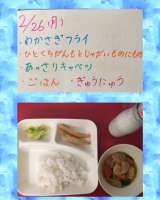 2/26(月)
・わかさぎフライ
・ひとくちがんもとじゃがいものにもの
・あっさりキャベツ
・ごはん ・ぎゅうにゅう